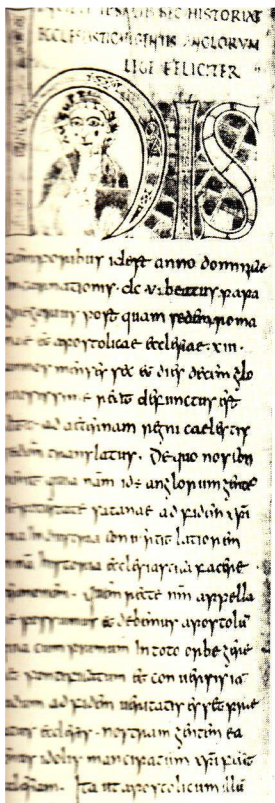 HISTORIAE
ECCLESIASTICAE GENTIS ANGLORVM
LEGE FELICITER
HIS
temporibus id est anno dominicae
incarnationis · dc · v · beatus papa
gregorius post quam sedem roma
nae et apostolicae ecclesiae · xiii ·
annos menses sex et dies decem glo
rexit defunctus est
ad aeternam regni caelestis
sedem translatus · De quo nos con
uenit quia nam id est anglorum gentem
potestate satanae ad fidem xpi
sua industria conuertit latiorem
historia ecclesiastica facere
sermonem · quem recte nrm appella
re possumus et debemus apostolu
quia cum primum in toto orbe gere
ret pontificatum et conuersis ia
dudum ad fidem ueritatis esset prae
latus ecclesiis · nostram gentem ea
tenus idolis mancipatam xpi fecit
ecclesiam · Ita ut apostolicum illu